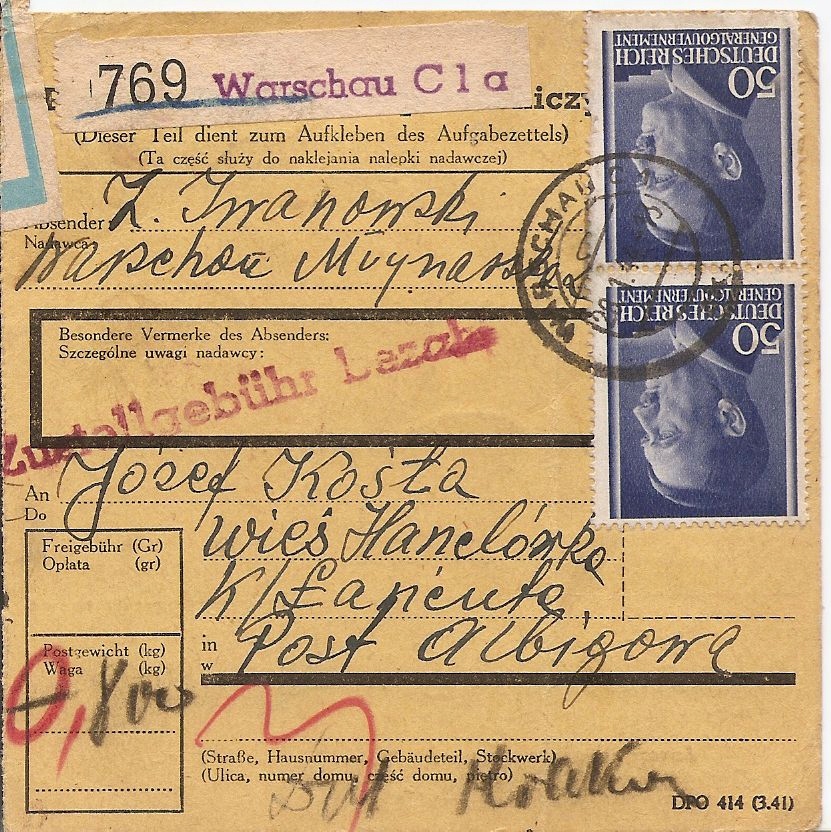 769 Warschau C 1 a
(Dieser Teil dient zum Aufkleben des Aufgabezettels)
(Ta część służy do naklejania nalepki nadawczej)
Absender:
Nadawca:
Z. Iwanowski
Warschau
Besondere Vermerke des Absenders:
Szczególne uwagi nadawcy:
Zustellgebühr bezahlt
An
Do
Józef Kośta
wieś Hanelówka
k/Łańcuta,
in
w
Post Albigowa
Freigebühr (Gr)
Opłata (gr)
Postgewicht (kg)
Waga (kg)
0,800
(Straße, Hausnummer, Gebäudeteil, Stockwerk)
(Ulica, numer domu, część domu, piętro)
DPO 414 (3.41)
DEUTSCHES REICH
GENERALGOUVERNEMENT
50
DEUTSCHES REICH
GENERALGOUVERNEMENT
50
WARSCHAU C 1